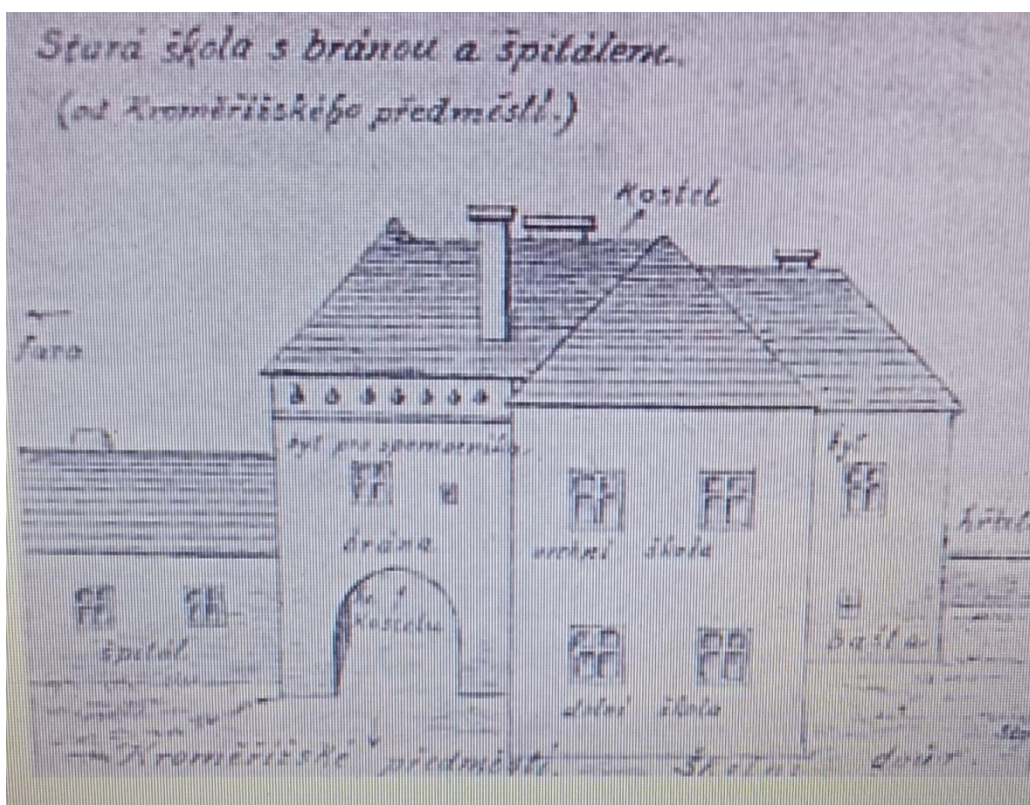 Stará škola s bránou a špitálem.
(od Kroměřížského předměstí.)
Kostel
Fara
byt pro spomocníka.
byt
brána
vrchní škola
ke
kostelu
špitál
bašta
dolní škola
Kroměřížské předměstí. Školní dvůr.